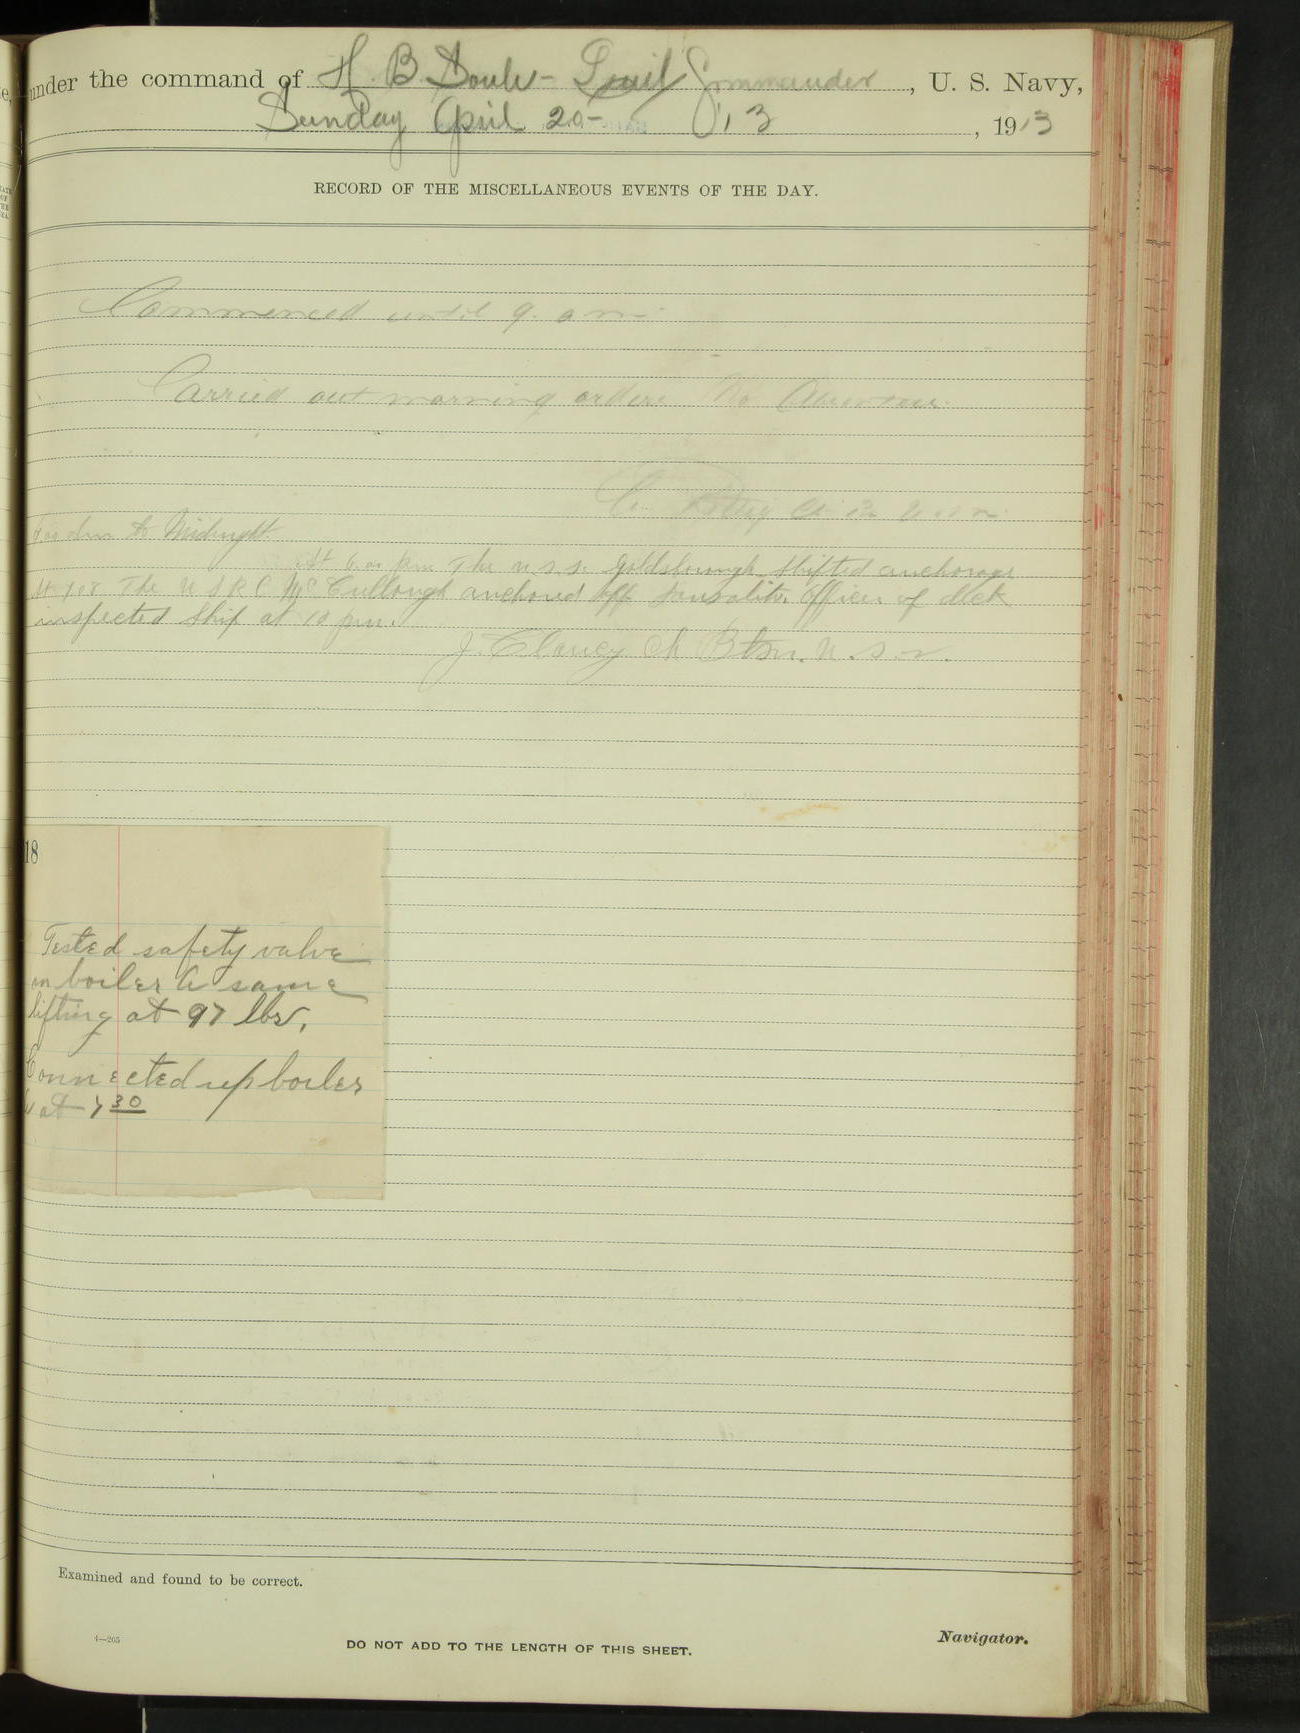 under the command of H. B. Soule - Lieut Commander, U. S. Navy,
Sunday April 20- '13, 1913
RECORD OF THE MISCELLANEOUS EVENTS OF THE DAY.
Commenced until 9. am-
Carried out morning orders No Absentees.
to Midnight
At 6.00 pm The U.S.S. Goldsborough shifted anchorage
At The U S R C McCullough anchored off Sausalito Officer of deck
inspected ship at 10 pm.
J. Clancy Ch Btsn. U.S.N.
18
Tested safety valve
on boiler A same
lifting at 97 lbs,
Connected up boiler
at 7 30
Examined and found to be correct.
4—205
DO NOT ADD TO THE LENGTH OF THIS SHEET.
Navigator.